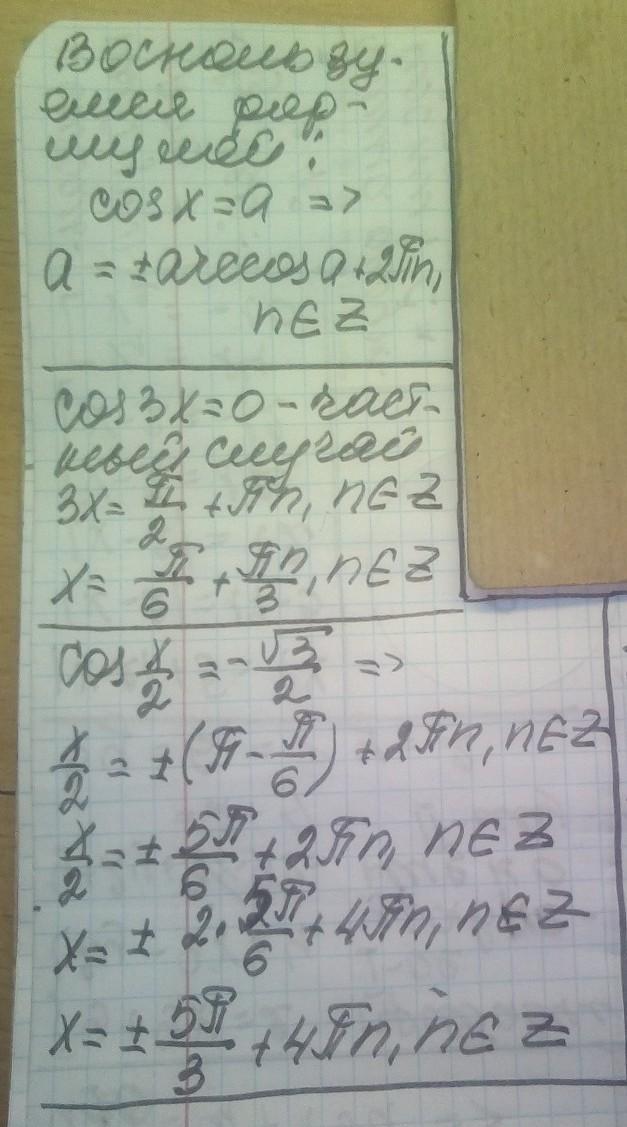 Воспользу-
емся фор-
мулой:
cos x = a =>
a = ± arccos a + 2πn,
n ∈ Z
cos 3x = 0 - част-
ный случай
3x = π/2 + πn, n ∈ Z
x = π/6 + πn/3, n ∈ Z
cos x/2 = -√3/2 =>
x/2 = ± (π - π/6) + 2πn, n ∈ Z
x/2 = ± 5π/6 + 2πn, n ∈ Z
x = ± 2 · 5π/6 + 4πn, n ∈ Z
x = ± 5π/3 + 4πn, n ∈ Z